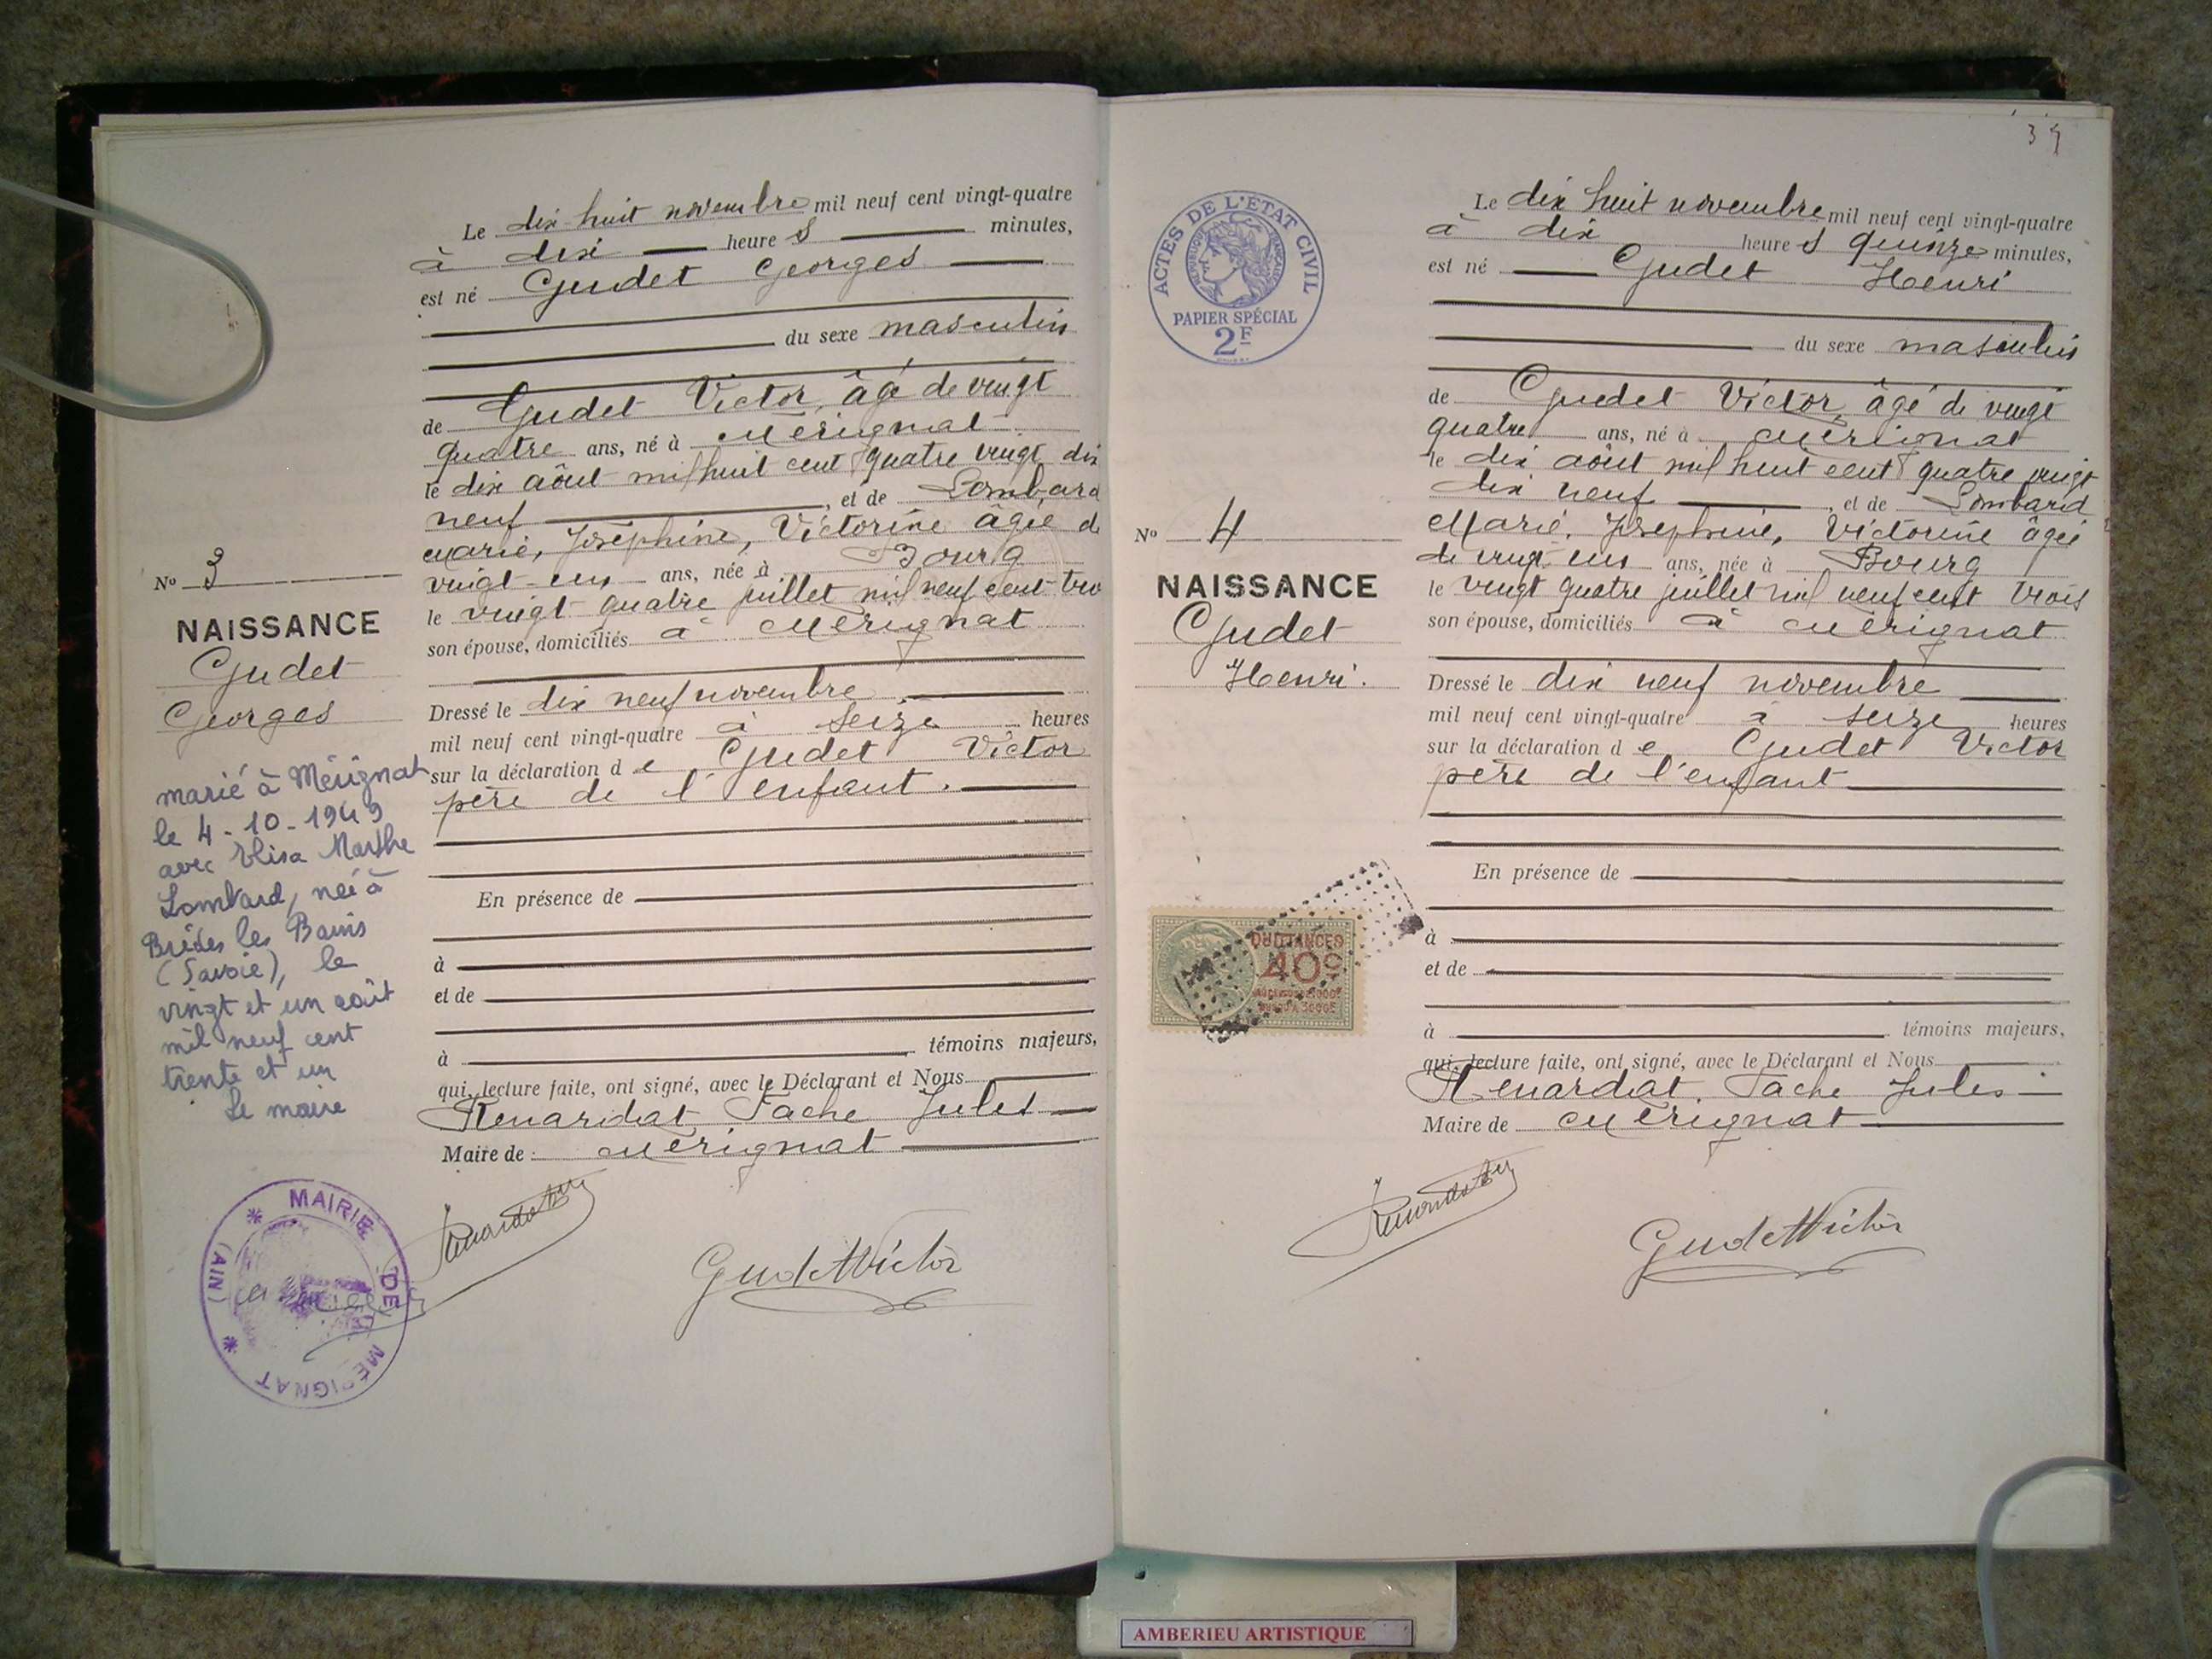 Le dix huit novembre mil neuf cent vingt-quatre
à dix heure s minutes,
est né Gudet Georges
du sexe masculin
de Gudet Victor, âgé de vingt
quatre ans, né à Mérignat
le dix aôut mil huit cent quatre vingt dix
neuf, et de Lombard
Marie, Joséphine, Victorine âgée d
vingt-un ans, née à Bourg
le vingt quatre juillet mil neuf cent tro
son épouse, domiciliés à Mérignat
Dressé le dix neuf novembre
mil neuf cent vingt-quatre à seize heures
sur la déclaration d e Gudet Victor
père de l'enfant.
En présence de
à
et de
à témoins majeurs,
qui, lecture faite, ont signé, avec le Déclarant et Nous
Renardat Fache Jules
Maire de Mérignat
Gudet Victor
No 3
NAISSANCE
Gudet
Georges
marié à Mérignat
le 4-10-1949
avec Elisa Marthe
Lombard, née à
Brides les Bains
(Savoie), le
vingt et un août
mil neuf cent
trente et un
Le maire
MAIRIE DE MÉRIGNAT
(AIN)
39
ACTES DE L'ÉTAT CIVIL
RÉPUBLIQUE FRANÇAISE
PAPIER SPÉCIAL
2F
Le dix huit novembre mil neuf cent vingt-quatre
à dix heure s quinze minutes,
est né Gudet Henri
du sexe masculin
de Gudet Victor, âgé de vingt
quatre ans, né à Mérignat
le dix aôut mil huit cent quatre vingt
dix neuf, et de Lombard
Marie, Josephine, Victorine âgée
de vingt-un ans, née à Bourg
le vingt quatre juillet mil neuf cent trois
son épouse, domiciliés à Mérignat
Dressé le dix neuf novembre
mil neuf cent vingt-quatre à seize heures
sur la déclaration d e Gudet Victor
père de l'enfant
En présence de
à
et de
à témoins majeurs,
qui, lecture faite, ont signé, avec le Déclarant et Nous
Renardat. Fache Jules
Maire de Mérignat
Gudet Victor
No 4
NAISSANCE
Gudet
Henri.
QUITTANCES
40c
AMBERIEU ARTISTIQUE